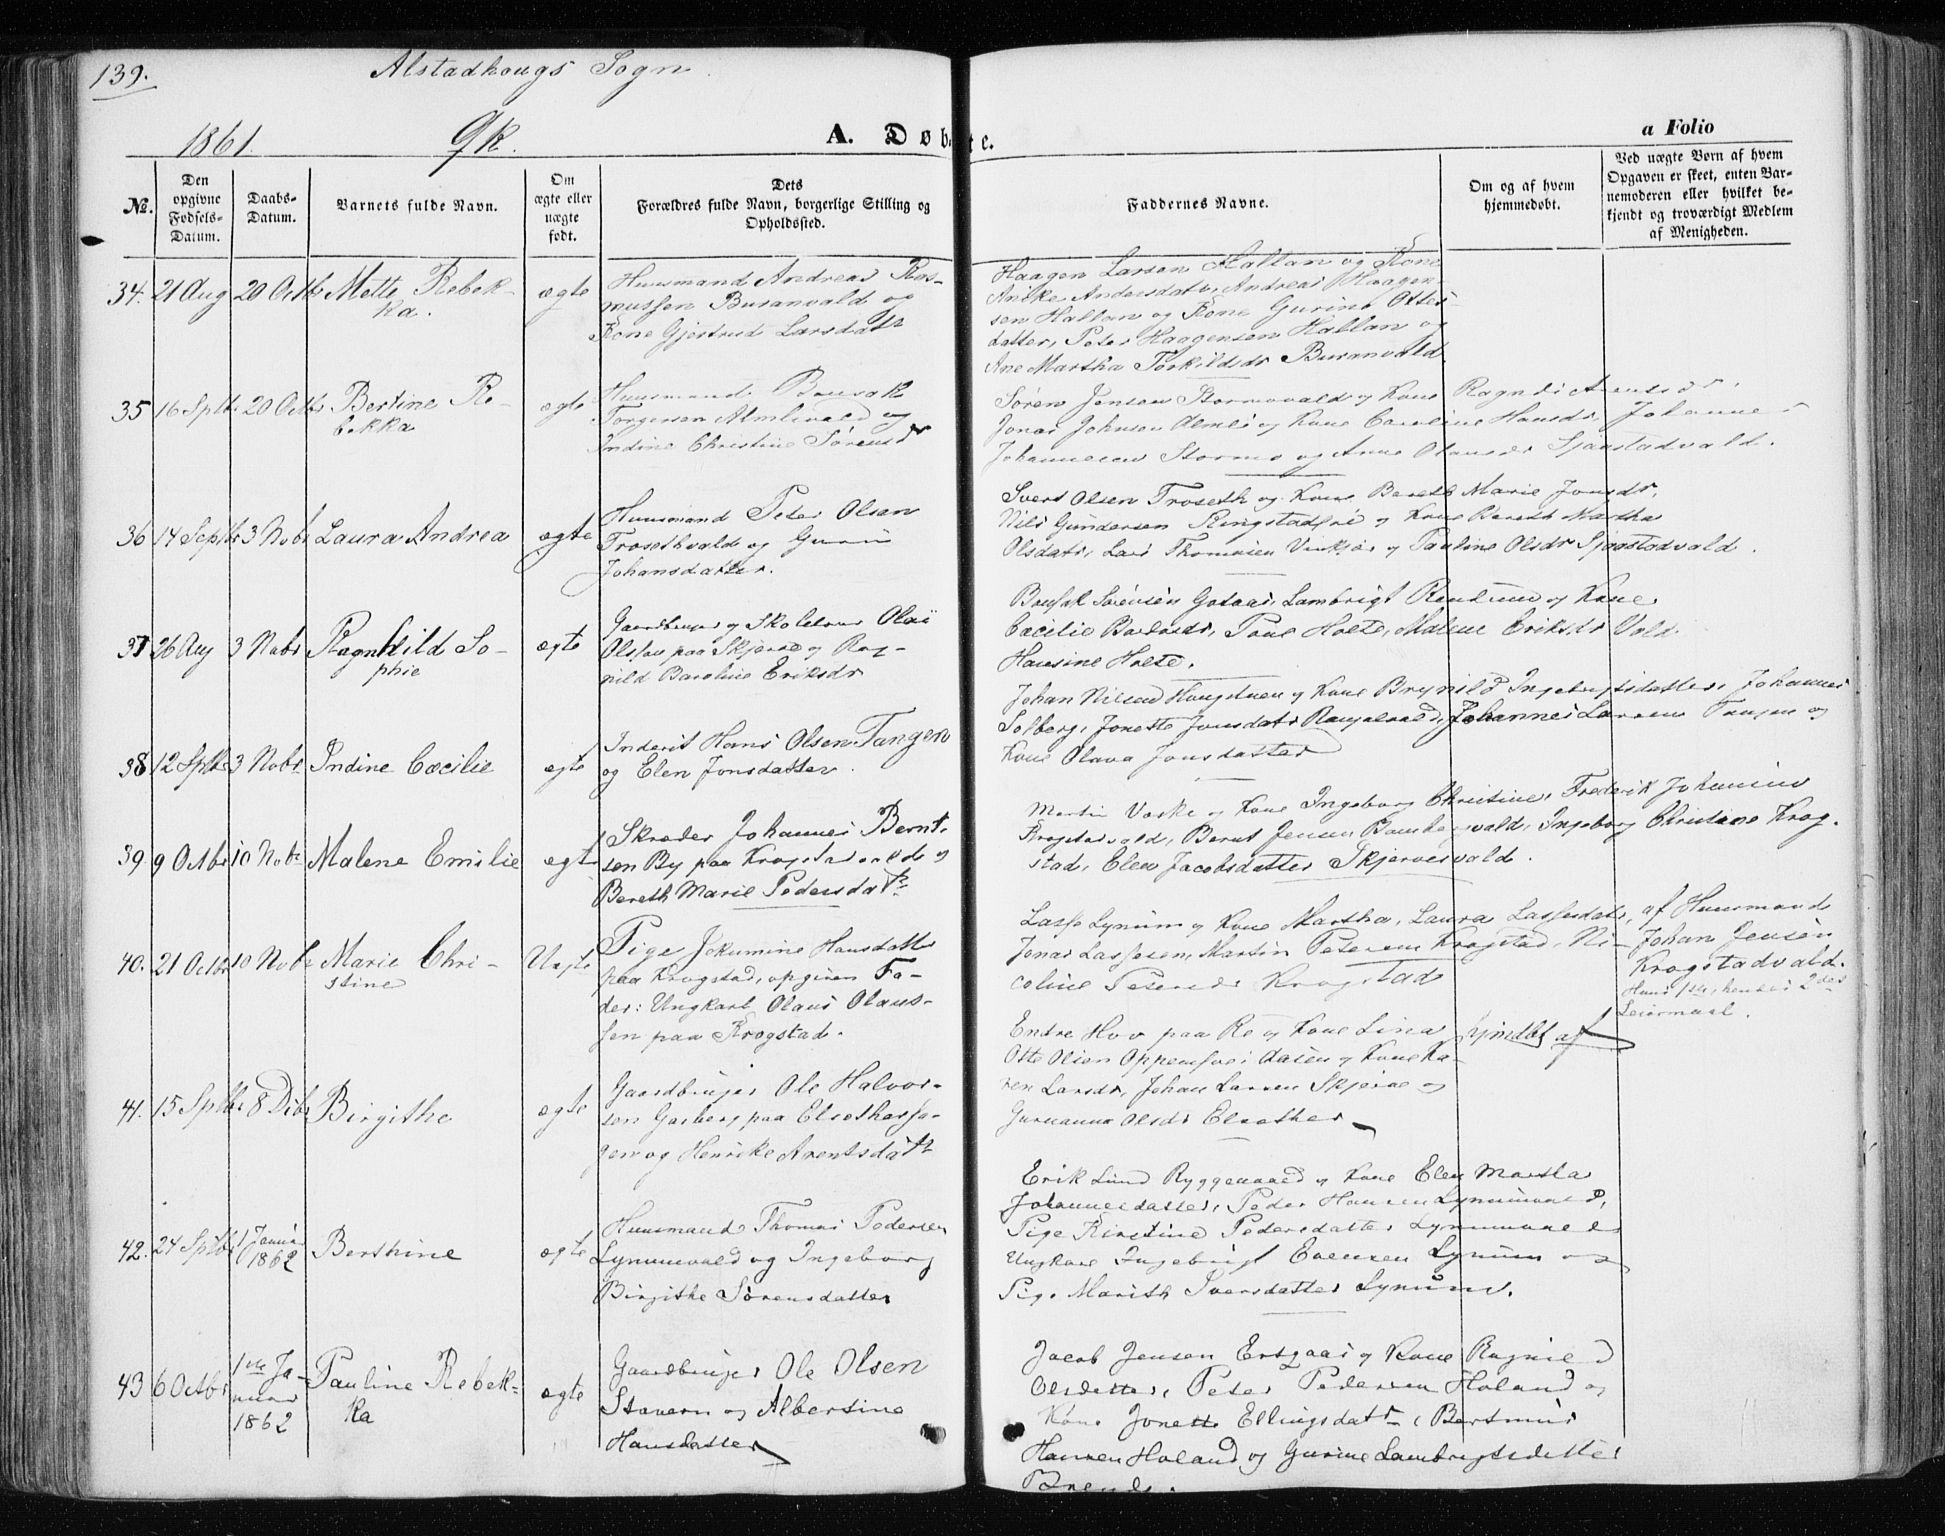 139. Alstadhougs Sogn
1861. Qk. A. Døbte. a Folio
№.
Den opgivne Fødsels-Datum.
Daabs-Datum.
Barnets fulde Navn.
Om ægte eller uægte født.
Dets Forældres fulde Navn, borgerlige Stilling og Opholdssted.
Faddernes Navne.
Om og af hvem hjemmedøbt.
Ved uægte Børn af hvem Opgaven er skeet, enten Barnemoderen eller hvilket bekjendt og troværdigt Medlem af Menigheden.
34. 21 Aug 20 Octbr Mette Rebek-
ka.
ægte
Huusmand Andreas Ras-
mussen Buranvald og
Kone Gjertrud Larsdatr
Haagen Larsen Hallan og Kone
Anike Andersdatr, Andreas Haagen-
sen Hallan og Kone Gurine Ottes-
datter, Peter Haagensen Hallan og
Ane Martha Torkildsdr Buranvald
35 16 Sptbr 20 Octbr Bertine Re-
bekka
ægte
Huusmand Bousak
Torgersen Almlivald og
Indine Christine Sørensdr
Søren Jensen Stormovald og Kone Ragndi Arensdr,
Jonas Johnsen Almli og Kone Caroline Hansdr, Johannes
Johannesen Stormo og Anne Olausdr Sjaastadvald.
36 14 Septbr 3 Nobr Laura Andrea
ægte
Huusmand Peter Olsen
Trosethvald og Guru
Johansdatter.
Sivert Olsen Troseth og Kone Bereth Marie Jonsdr,
Nils Gundersen Ringstad og Kone Bereth Martha
Olsdatr, Lars Thomasen og Pauline Olsdr Sjaastadvald.
37 26 Aug 3 Nobr Ragnhild So-
phie
ægte
Gaardbruger og Skolelærer Olai
Olsen paa Skjerve og Rag-
nild Baroline Eriksdr
Bousak Sørensen Lambrigt og Kone
Cæcilie Bardosdr, Paul Holte, Malene Eriksdr Vold
Hansine Holte.
38 12 Sptbr 3 Nobr Indine Cæcilie
ægte
Inderst Hans Olsen Tangen
og Elen Jonsdatter.
Johan Nilsen og Kone Brynild Ingebrigtsdatter, Johannes
Solberg, Jonette Jonsdatr, Johannes Larsen Tangen og
Kone Olava Jonsdatter
39. 9 Octbr 10 Nobr Malene Emilie
ægte
Skræder Johannes Bernt-
sen By paa Krogstadvald og
Bereth Marie Pedersdatr
Martin Voske og Kone Ingeborg Christine, Frederik Johansen
Krogstadvald, Bernt Jensen, Ingeborg Christine Krog-
stad, Elen Jacobsdatter Skjervesvald.
40. 21 Octbr 10 Nobr Marie Chri-
stine
Uægte
Pige Jokumine Hansdatter
paa Krogstad, opgiven Fa-
der: Ungkarl Olaus Olaus-
sen paa Krogstad.
Lasse Lynum og Kone Martha, Laura Lassesdatr,
Jonas Lassesen, Martin Petersen Krogstad, Ni-
coline Petersdr Krogstad
af Huusmand
Johan Jensen
Krogstadvald.
Hans 1ste, hendes 2det
Leiermaal.
41. 15 Sptbr 8 Dcbr Birgithe
ægte
Gaardbruger Ole Halvor-
sen Gasberg paa Elvethassa-
gen og Henrike Arentsdatr
Endre Hov paa Re og Kone Lina
Otte Olsen Oppemsve Aasen og Kone Ka-
ren Larsdr, Johan Larsen Skjerve og
Gurianna Olsdr Elvethas
hjmdbt af
42. 24 Sptbr 1 Januar
1862
Berthine
ægte
Huusmand Thomas Pedersen
Lynumvald og Ingeborg
Birgithe Sørensdatter
Erik Lund Ryggenvald og Kone Elen Martha
Johannesdatter, Peder Hansen Lynumvald,
Pige Kirstine Pedersdatter Lynumvald
Ungkarl Ingebrigt Evensen Lynum og
Pige Marith Iversdatter Lynum.
43 6 Octbr 1ste Ja-
nuar
1862
Pauline Rebek-
ka
ægte
Gaardbruger Ole Olsen
Stavern og Albertine
Hansdatter
Jacob Jensen Ersgaas og Kone Ragnild
Olsdatter, Peter Pedersen Holand og
Kone Jonette Ellingsdatr, Bertinus
Hansen Holand og Gurine Lambrigtsdatter